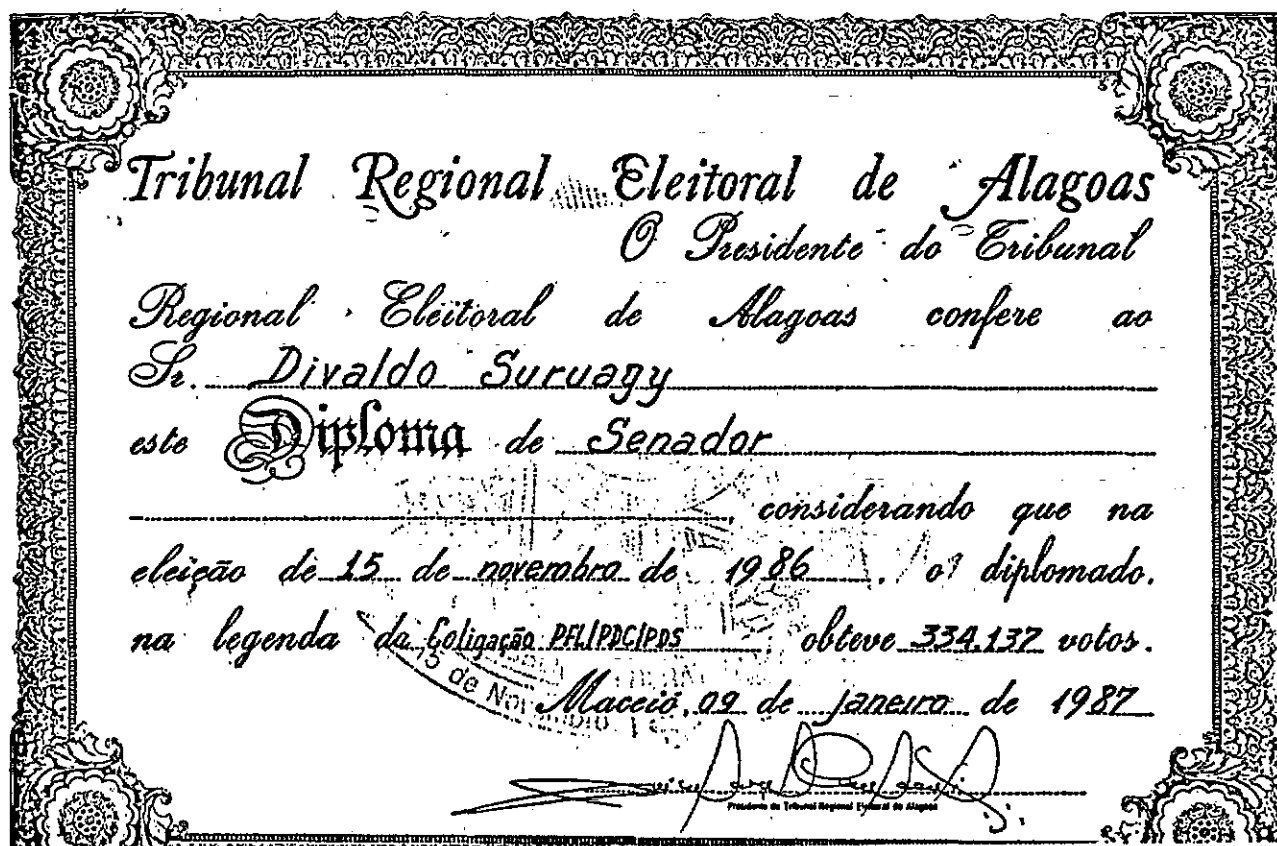 Tribunal Regional Eleitoral de Alagoas
O Presidente do Tribunal
Regional Eleitoral de Alagoas confere ao
Sr. Divaldo Suruagy
este Diploma de Senador
, considerando que na
eleição de 15 de novembro de 1986, o diplomado,
na legenda da Coligação PFL/PDC/PDS obteve 334.137 votos.
15 de Novembro
Maceió, 09 de janeiro de 1987
Presidente do Tribunal Regional Eleitoral de Alagoas